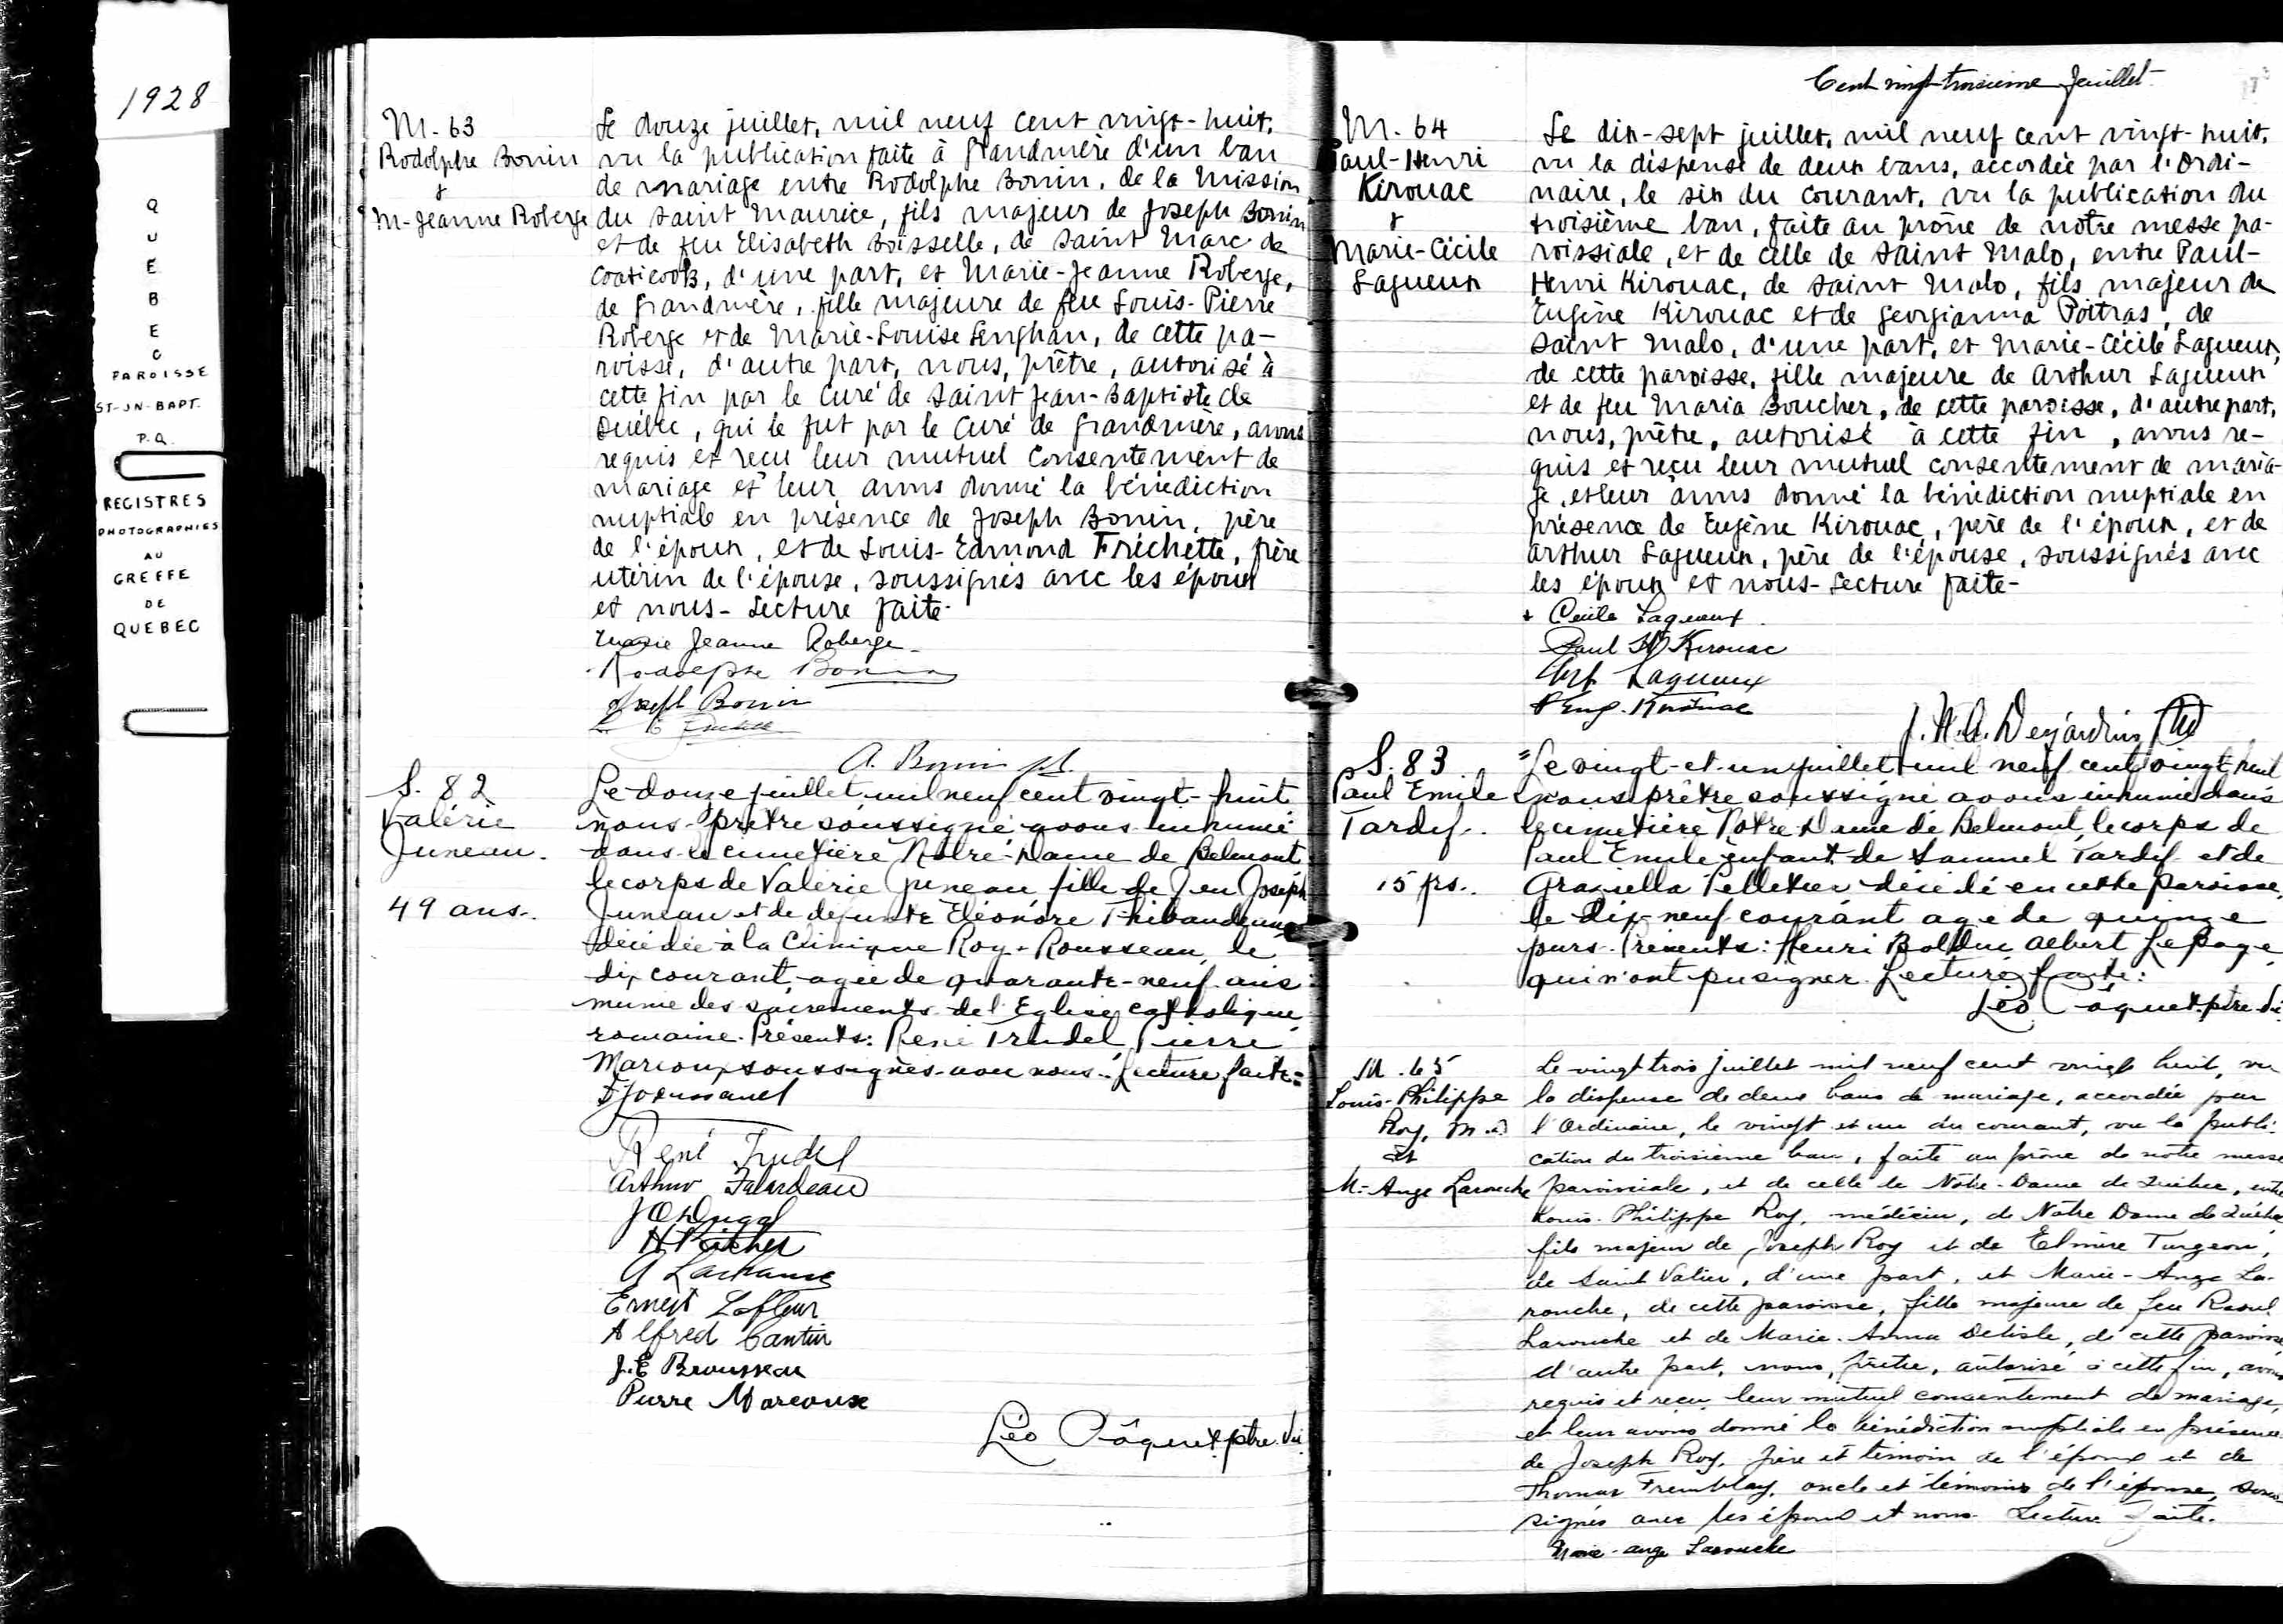 1928
QUEBEC
PAROISSE
ST-JN-BAPT.
P.Q.
REGISTRES
PHOTOGRAPHIES
AU
GREFFE
DE
QUEBEC
M. 63
Rodolphe Bonin
&
M-Jeanne Roberge
Le douze juillet, mil neuf cent vingt-huit,
vu la publication faite à Grandmère d'un ban
de mariage entre Rodolphe Bonin, de la Mission
du Saint Maurice, fils majeur de Joseph Bonin
et de feu Elisabeth Boisselle, de Saint Marc de
Coaticook, d'une part, et Marie-Jeanne Roberge,
de Grandmère, fille majeure de feu Louis-Pierre
Roberge et de Marie-Louise Lenghan, de cette pa-
roisse, d'autre part, nous, prêtre, autorisé à
cette fin par le Curé de Saint Jean-Baptiste de
Québec, qui le fut par le Curé de Grandmère, avons
requis et reçu leur mutuel consentement de
mariage et leur avons donné la bénédiction
nuptiale en présence de Joseph Bonin, père
de l'époux, et de Louis-Edmond Fréchette, frère
utérin de l'épouse, soussignés avec les époux
et nous - Lecture faite -
Marie Jeanne Roberge
Rodolphe Bonin
Joseph Bonin
A. Bonin pt.
S. 82
Valérie
Juneau.
49 ans.
Le douze juillet mil neuf cent vingt-huit
nous prêtre soussigné avons inhumé
dans le cimetière Notre-Dame de Belmont
le corps de Valérie Juneau fille de feu Joseph
Juneau et de defunte Eléonore Thibaudeau
décédée à la Clinique Roy-Rousseau, le
dix courant, agée de quarante-neuf ans
munie des sacrements de l'Eglise catholique
romaine. Présents: René Trudel, Pierre
Marcoux soussignés avec nous. Lecture faite:
René Trudel
Arthur Falardeau
J O Dugal
A Lachance
Ernest Lafleur
Alfred Cantin
J.E Brousseau
Pierre Marcoux
Léo Pâquet ptre. vic
Cent vingt-troisième feuillet
M. 64
Paul-Henri
Kirouac
&
Marie-Cécile
Lagueux
Le dix-sept juillet, mil neuf cent vingt-huit,
vu la dispense de deux bans, accordée par l'Ordi-
naire, le six du courant, vu la publication du
troisième ban, faite au prône de notre messe pa-
roissiale, et de celle de Saint Malo, entre Paul-
Henri Kirouac, de Saint Malo, fils majeur de
Eugène Kirouac et de Georgianna Poitras, de
Saint Malo, d'une part, et Marie-Cécile Lagueux,
de cette paroisse, fille majeure de Arthur Lagueux
et de feu Maria Boucher, de cette paroisse, d'autre part,
nous, prêtre, autorisé à cette fin, avons re-
quis et reçu leur mutuel consentement de maria-
ge, et leur avons donné la bénédiction nuptiale en
présence de Eugène Kirouac, père de l'époux, et de
Arthur Lagueux, père de l'épouse, soussignés avec
les époux et nous - Lecture faite -
+ Cécile Lagueux
Paul H Kirouac
Art Lagueux
Eug. Kirouac
J. H. A. Desjardins
S. 83
Paul Emile
Tardif.
15 jrs.
Le vingt-et-un juillet mil neuf cent vingt-huit
nous prêtre soussigné avons inhumé dans
le cimetière Notre Dame de Belmont le corps de
Paul Emile enfant de Samuel Tardif et de
Graziella Pelletier décédé en cette paroisse,
le dix-neuf courant agé de quinze
jours. Présents: Henri Bolduc Albert Lepage
qui n'ont pu signer. Lecture faite:
Léo Pâquet ptre. vic
M. 65
Louis-Philippe
Roy, M.D
et
M-Ange Larouche
Le vingt trois juillet mil neuf cent vingt huit, vu
la dispense de deux bans de mariage, accordée par
l'Ordinaire, le vingt et un du courant, vu la publi-
cation du troisième ban, faite au prône de notre messe
paroissiale, et de celle de Notre-Dame de Québec, entre
Louis-Philippe Roy, médecin, de Notre Dame de Québec
fils majeur de Joseph Roy et de Elmire Turgeon,
de Saint Valier, d'une part, et Marie-Ange La-
rouche, de cette paroisse, fille majeure de feu Raoul
Larouche et de Marie-Anna Delisle, de cette paroisse
d'autre part, nous, prêtre, autorisé à cette fin, avons
requis et reçu leur mutuel consentement de mariage,
et leur avons donné la bénédiction nuptiale en présence
de Joseph Roy, père et témoin de l'époux et de
Thomas Tremblay, oncle et témoin de l'épouse, sous-
signés avec les époux et nous. Lecture faite.
Marie-Ange Larouche